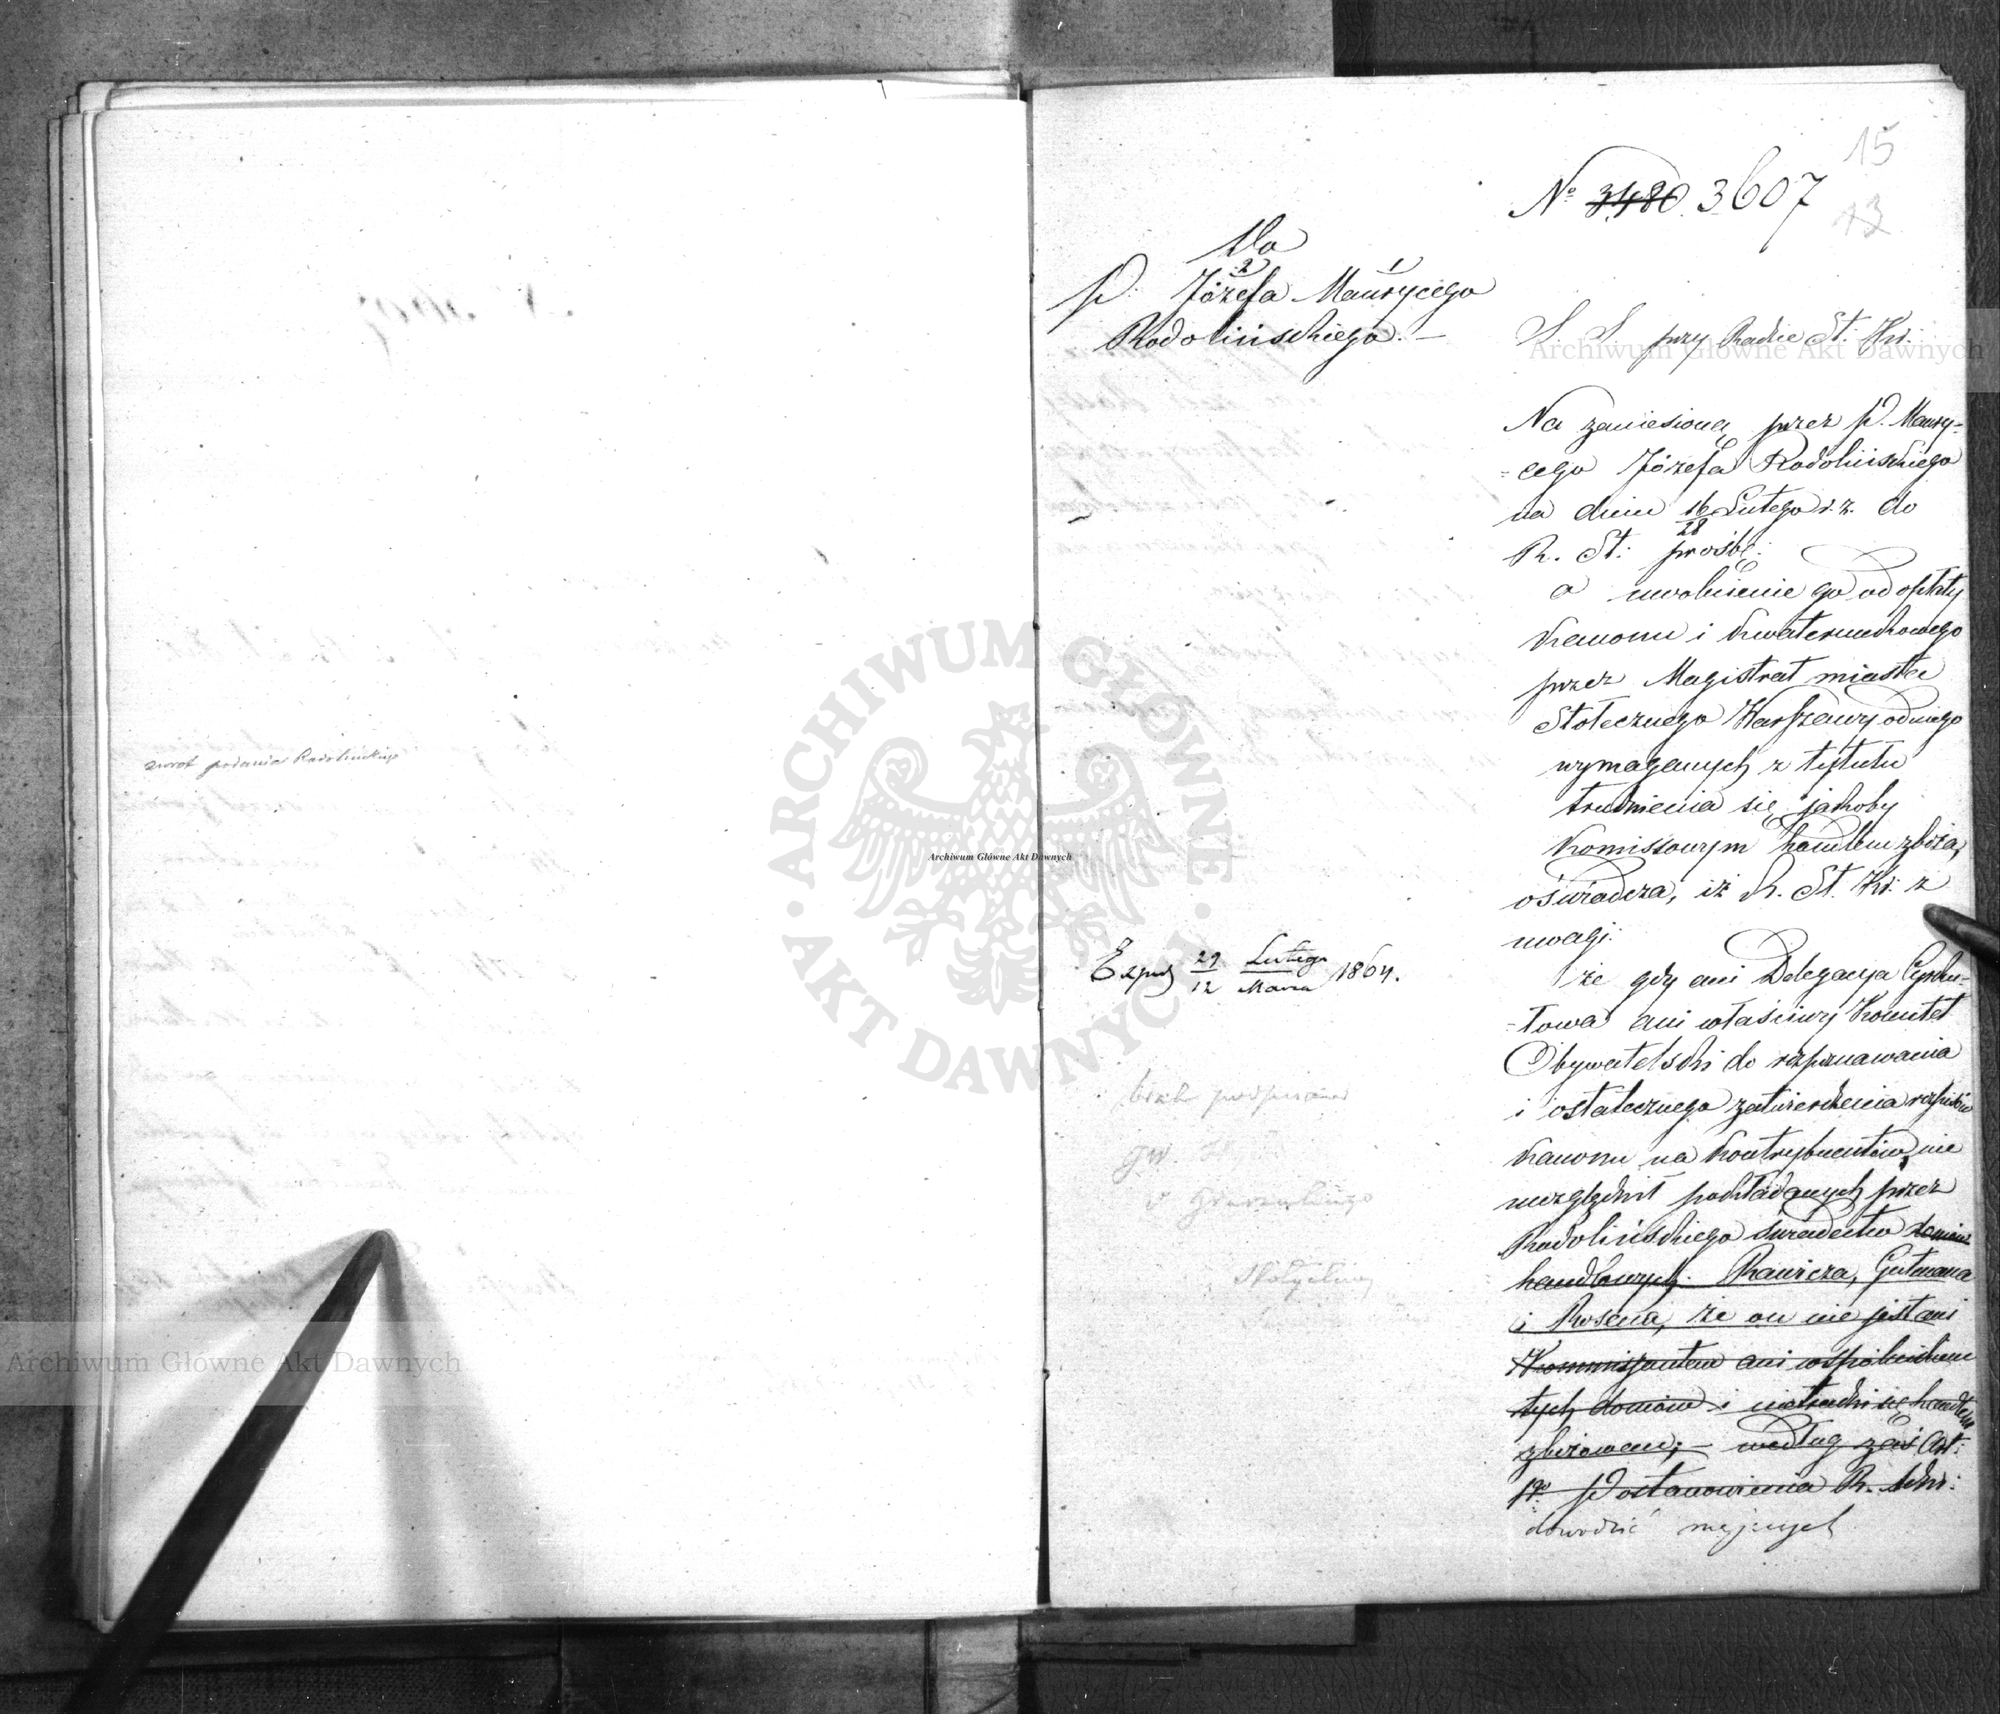 zwrot podania Radolińskiego
15
13
No 3480 3607
Do
2 1
P. Józefa Maurycego
Radolińskiego. –
S. S. przy Radzie St: Kr:
Na zaniesioną przez P. Maury-
-cego Józefa Radolińskiego
na dniu 16/28 Lutego r. z. do
R. St: prośbę:
o uwolnienie go od opłaty
kanonu i kwaterunkowego
przez Magistrat miasta
Stołecznego Warszawy od niego
wymaganych z tytułu
trudnienia się jakoby
komissowym handlem zboża,
oświadcza, iż R. St. Kr. z
uwagi:
że gdy ani Delegacya Cyrku-
-łowa ani właściwy Komitet
Obywatelski do rozpoznawania
i ostatecznego zatwierdzenia rozkładów
kanonu na kontrybuentów, nie
uwzględnił podkładanych przez
Radolińskiego świadectw domów
handlowych: Rawicza, Gutmana
i Rosena, że on nie jest ani
Kommisjantem ani wspólnikiem
tych domów i nietrudni się handlem
zbożowem; – według zaś Art:
1go Postanowienia R. Adm:
dowodzić mających
Exped 29/12 Lutego/Marca 1864.
brak podpisów
Archiwum Główne Akt Dawnych
ARCHIWUM GŁÓWNE · AKT DAWNYCH ·
Archiwum Główne Akt Dawnych
Archiwum Główne Akt Dawnych